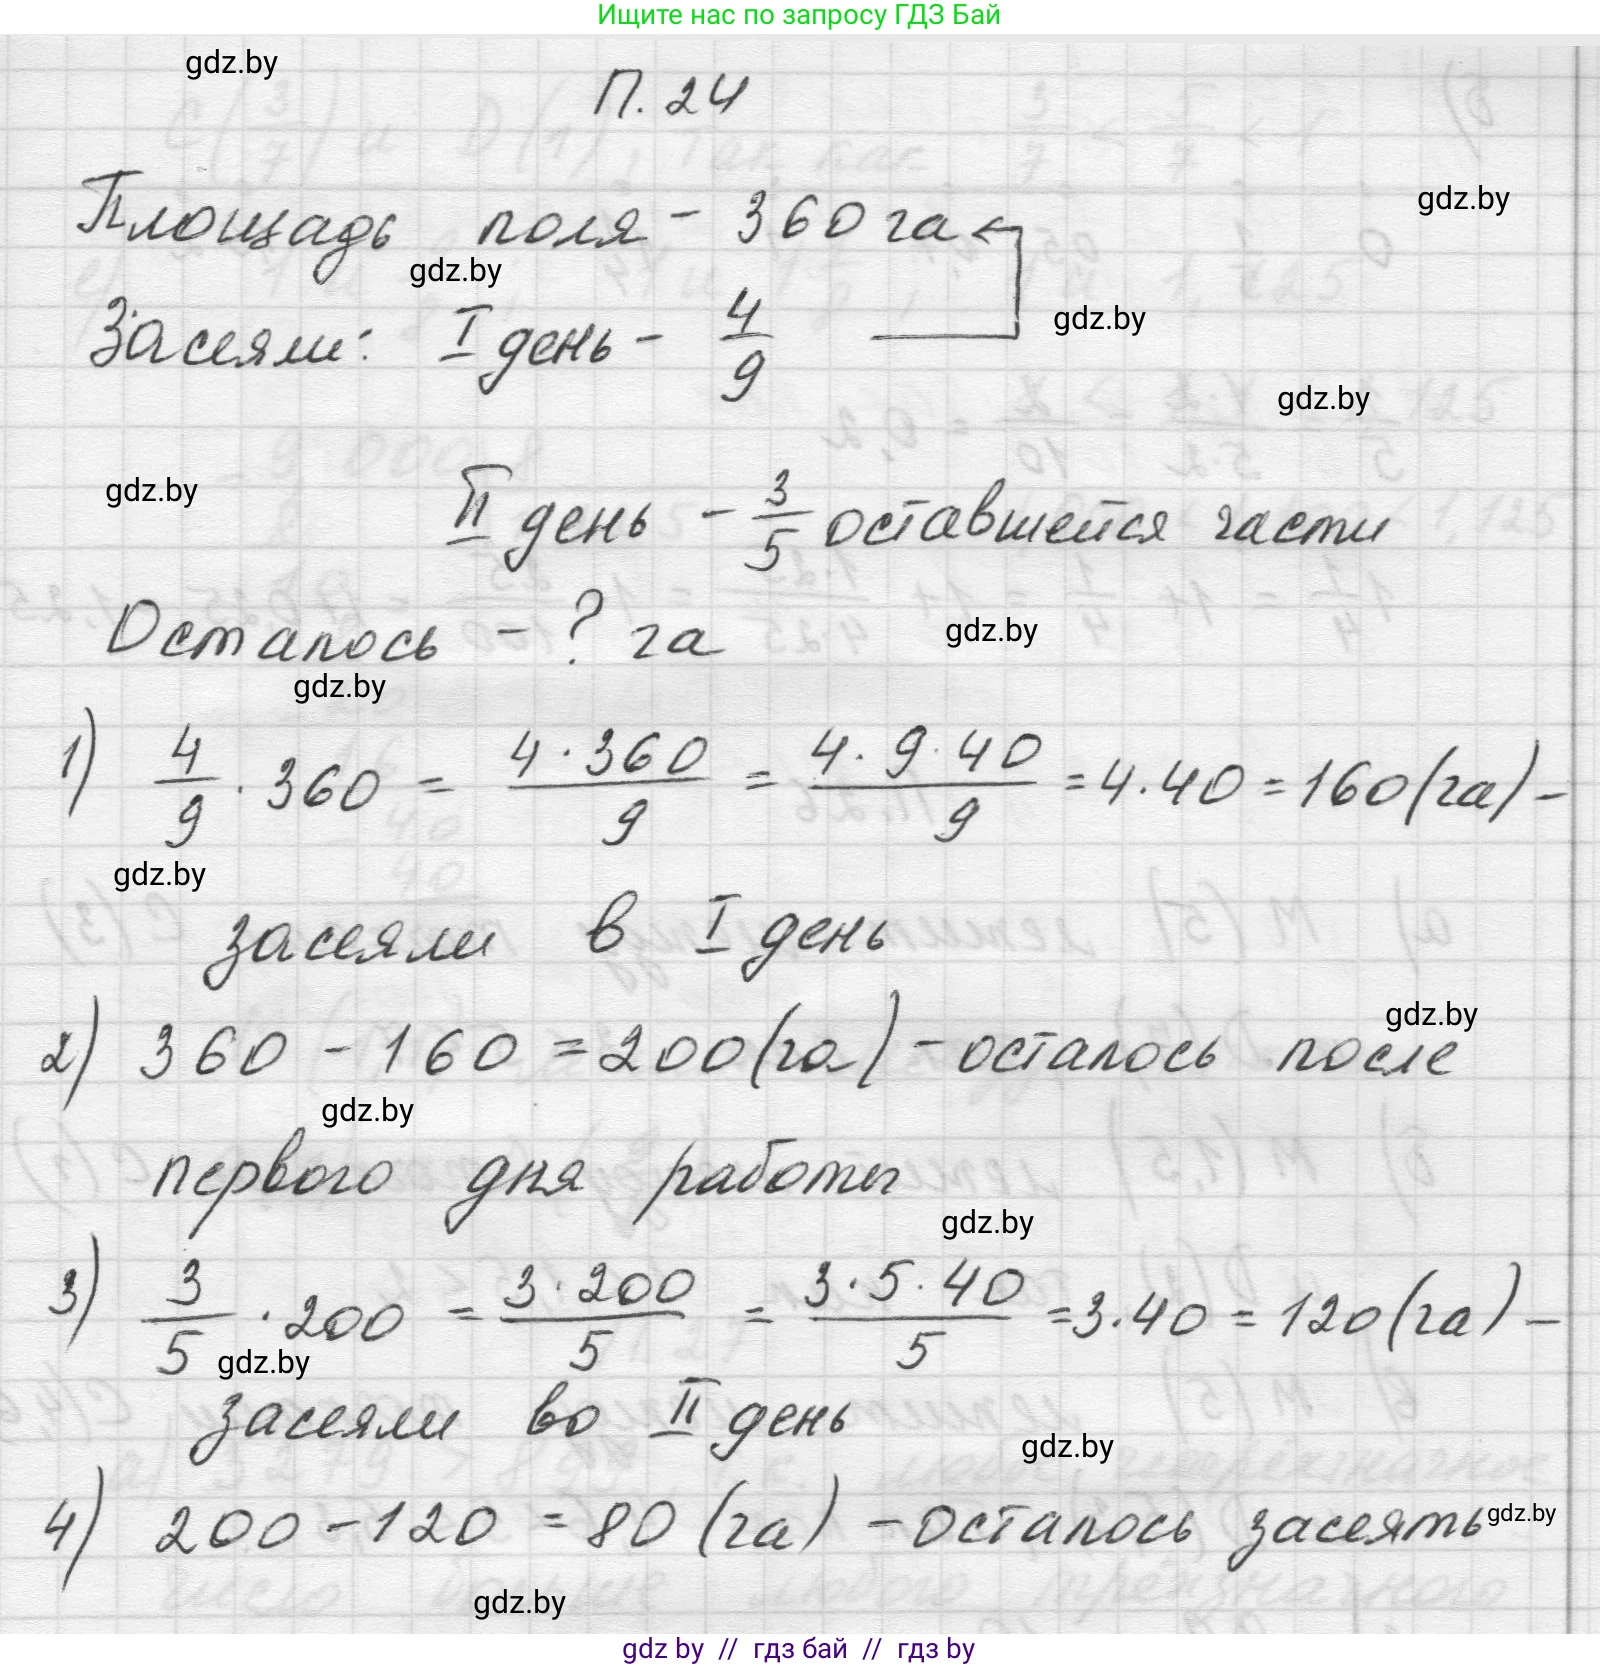 Ищите нас по запросу ГДЗ Бай
gdz.by
П. 24
gdz.by
Площадь поля - 360 га
gdz.by
Засеяли: I день - 4/9
gdz.by
gdz.by
gdz.by
II день - 3/5 оставшейся части
Осталось - ? га
gdz.by
gdz.by
1) 4/9 · 360 = 4 · 360/9 = 4 · 9 · 40/9 = 4 · 40 = 160 (га) -
gdz.by
засеяли в I день
gdz.by
2) 360 - 160 = 200 (га) - осталось после
gdz.by
первого дня работы
gdz.by
3) 3/5 · 200 = 3 · 200/5 = 3 · 5 · 40/5 = 3 · 40 = 120 (га) -
gdz.by
засеяли во II день
gdz.by
4) 200 - 120 = 80 (га) - осталось засеять
gdz.by
gdz.by
gdz by // гдз бай // гдз by